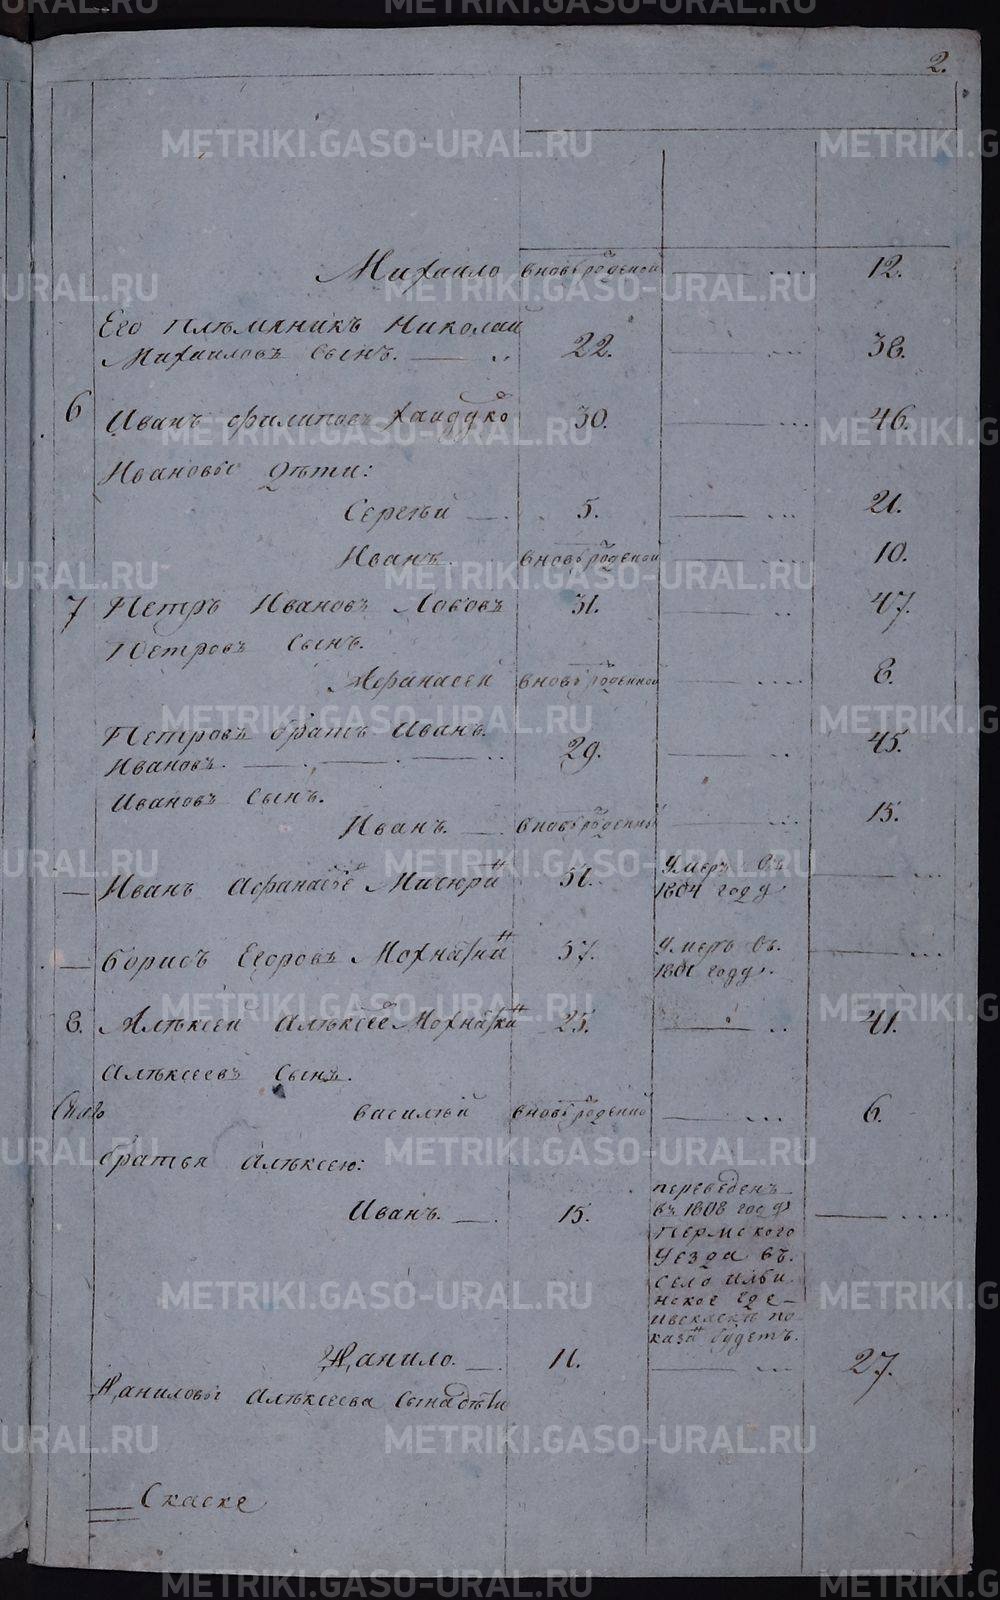 2.
Михаило вновь рожденой — ... 12.
Его племяникъ Николай
Михаиловъ Сынъ. — .. 22. — ... 38.
6 Иванъ Филиповъ Хайдуко 30. — ... 46.
Ивановы дѣти:
Сергѣй — 5. — ... 21.
Иванъ. вновь рожденой — ... 10.
7 Петръ Ивановъ Лобовъ 31. — ... 47.
Петровъ Сынъ.
Афанасей вновь рожденной — ... 8.
Петровъ братъ Иванъ
Ивановъ. — . — . — .. 29. — .. 45.
Ивановъ Сынъ.
Иванъ. — вновь рожденный — ... 15.
— Иванъ Афанасье 51. Умеръ въ — ...
1804 году
— Борисъ Егоровъ Мохнаткин 57. Умеръ въ — ...
1801 году.
8. Алѣксеи Алѣксее Мохнаткин 25. — .. 41.
Алѣксеевъ Сынъ.
василѣй вновь рожденой — ... 6.
братья Алѣксею:
Иванъ. — 15. переведенъ — ....
въ 1808 году
Пермского
уезда въ
село Ильи
нское где
и въ скаскѣ по
казан будетъ.
Данило. — 11. — ... 27.
Даниловы Алѣксеева Сына дѣти
Скаске
METRIKI.GASO-URAL.RU